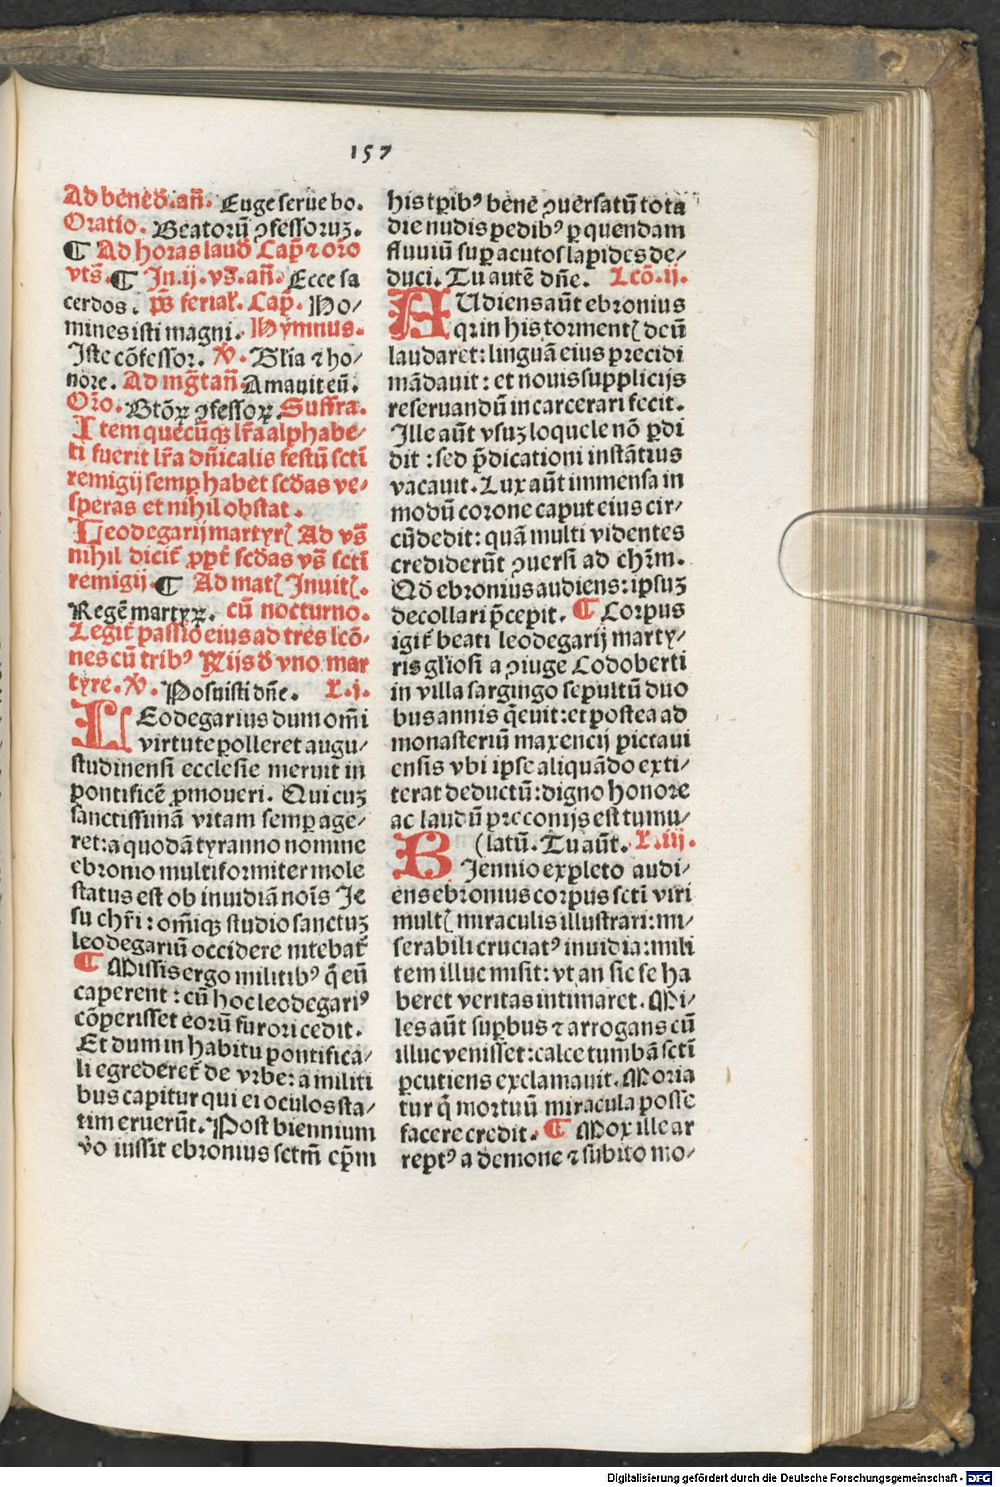 157
Ad bened̄. an̄. Euge serue bo.
Oratio. Beatorū ↄfessoruꝫ.
¶ Ad horas laud̄ Cap̄ ⁊ oro
vts̄. ¶ In .ij. vs̄. an̄. Ecce sa
cerdos. ps̄ ferial. Cap̄. Ho/
mines isti magni. Hymnus.
Iste cōfessor. v̄. Glia ⁊ ho/
nore. Ad mḡtan̄ Amauit eū.
Oro. Btōꝝ ↄfessoꝝ. Suffra.
Item quecūqꝫ lr̄a alphabe/
ti fuerit lr̄a dn̄icalis festū sctī
remigij semꝑ habet scd̄as ve/
speras et nihil obstat.
Leodegarij martyrꝭ Ad vs̄
nihil dicit̄ ꝓpt̄ scd̄as vs̄ sctī
remigij. ¶ Ad matꝭ Inuitꝭ.
Regē martyꝝ. cū nocturno.
Legit̄ passio eius ad tres lcō/
nes cū tribꝰ Rijs d̄ vno mar
tyre. v̄. Posuisti dn̄e. L. j.
LEodegarius dum om̄i
virtute polleret augu/
studinensi ecclesie meruit in
pontificē ꝓmoueri. Qui cuꝫ
sanctissimā vitam semꝑ age/
ret: a quodā tyranno nomine
ebronio multiformiter mole
status est ob inuidiā nois̄ Ie
su chr̄i: om̄iqꝫ studio sanctuꝫ
leodegariū occidere nitebat̄
¶ Missis ergo militibꝰ q̄ eū
caperent: cū hoc leodegariꝰ
cōperisset eorū furori cedit.
Et dum in habitu pontifica/
li egrederet̄ de vrbe: a militi
bus capitur qui ei oculos sta/
tim eruerūt. Post biennium
v̄o iussit ebronius sctm̄ ep̄m
his tꝑibꝰ bene ↄuersatū tota
die nudis pedibꝰ ꝑ quendam
fluuiū suꝑ acutos lapides de/
duci. Tu autē dn̄e. Lcō. ij.
AUdiens aūt ebronius
qꝛ in his tormentꝭ deū
laudaret: linguā eius precidi
mādauit: et nouis supplicijs
reseruandū incarcerari fecit.
Ille aūt vsuꝫ loquele nō ꝑdi
dit: sed p̄dicationi instātius
vacauit. Lux aūt immensa in
modū corone caput eius cir/
cūdedit: quā multi videntes
crediderūt ↄuersi ad chr̄m.
Qd̄ ebronius audiens: ipsuꝫ
decollari p̄cepit. ¶ Corpus
igit̄ beati leodegarij marty/
ris gliosi a ↄiuge Lodoberti
in villa sargingo sepultū duo
bus annis q̄euit: et postea ad
monasteriū maxencij pictaui
ensis vbi ipse aliquādo exti/
terat deductū: digno honore
ac laudū preconijs est tumu/
(latū. Tu aūt. L. iij.
BIennio expleto audi/
ens ebronius corpus sctī viri
multꝭ miraculis illustrari: mi/
serabili cruciatꝰ inuidia: mili
tem illuc misit: vt an sic se ha
beret veritas intimaret. Mi/
les aūt suꝑbus ⁊ arrogans cū
illuc venisset: calce tumbā sctī
ꝑcutiens exclamauit. Moria
tur q̄ mortuū miracula posse
facere credit. ¶ Mox ille ar
reptꝰ a demone ⁊ subito mo/
Digitalisierung gefördert durch die Deutsche Forschungsgemeinschaft - DFG